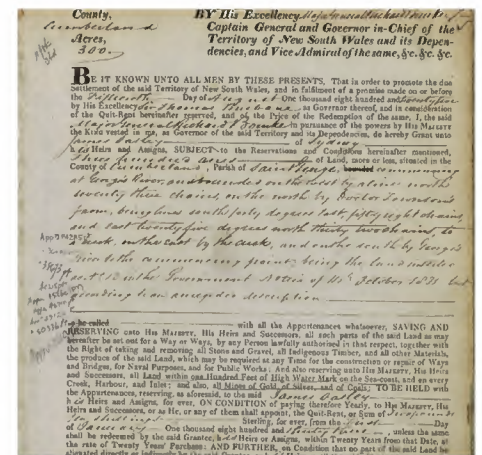 County, BY His Excellency Major General Richard Bourke
Cumberland Captain General and Governor in-Chief of the
Acres, Territory of New South Wales and its Depen-
300. dencies, and Vice Admiral of the same, &c. &c. &c.
BE IT KNOWN UNTO ALL MEN BY THESE PRESENTS, That in order to promote the due
Settlement of the said Territory of New South Wales, and in fulfilment of a promise made on or before
the Fifteenth Day of August One thousand eight hundred and twenty five
by His Excellency Sir Thomas Brisbane as Governor thereof, and in consideration
of the Quit-Rent hereinafter reserved, and of the Price of the Redemption of the same, I, the said
Major General Richard Bourke in pursuance of the powers by His Majesty
the KING vested in me, as Governor of the said Territory and its Dependencies, do hereby Grant unto
James Oatley of Sydney
his Heirs and Assigns, SUBJECT to the Reservations and Conditions hereinafter mentioned,
Three hundred acres of Land, more or less, situated in the
County of Cumberland, Parish of Saint George, bounded commencing
at George's River, and bounded on the West by a line north
seventy three chains, on the north by Doctor Townson's
farm, being lines south forty degrees East, fifty eight chains
and east twenty five degrees north thirty two chains, to
a creek, on the East by the creek, and on the south by George's
River to the commencing point; being the land
in the Government Notice of 11th October 1831 but
an description
to be called
with all the Appurtenances whatsoever, SAVING AND
RESERVING unto His MAJESTY, His Heirs and Successors, all such parts of the said Land as may
hereafter be set out for a Way or Ways, by any Person lawfully authorised in that respect, together with
the Right of taking and removing all Stones and Gravel, all Indigenous Timber, and all other Materials,
the produce of the said Land, which may be required at any Time for the construction or repair of Ways
and Bridges, for Naval Purposes, and for Public Works: And also reserving unto His MAJESTY, His Heirs
and Successors, all Land within One Hundred Feet of High Water Mark on the Sea-coast, and on every
Creek, Harbour, and Inlet; and also, all Mines of Gold, of Silver, and of Coals; TO BE HELD with
the Appurtenances, reserving, as aforesaid, to the said James Oatley
his Heirs and Assigns, for ever, ON CONDITION of paying therefore Yearly, to His MAJESTY, His
Heirs and Successors, or as He, or any of them shall appoint, the Quit-Rent, or Sum of
Sterling, for ever, from the First Day
of January One thousand eight hundred and unless the same
shall be redeemed by the said Grantee, his Heirs or Assigns, within Twenty Years from that Date, at
the rate of Twenty Years' Purchase: AND FURTHER, on Condition that no part of the said Land be